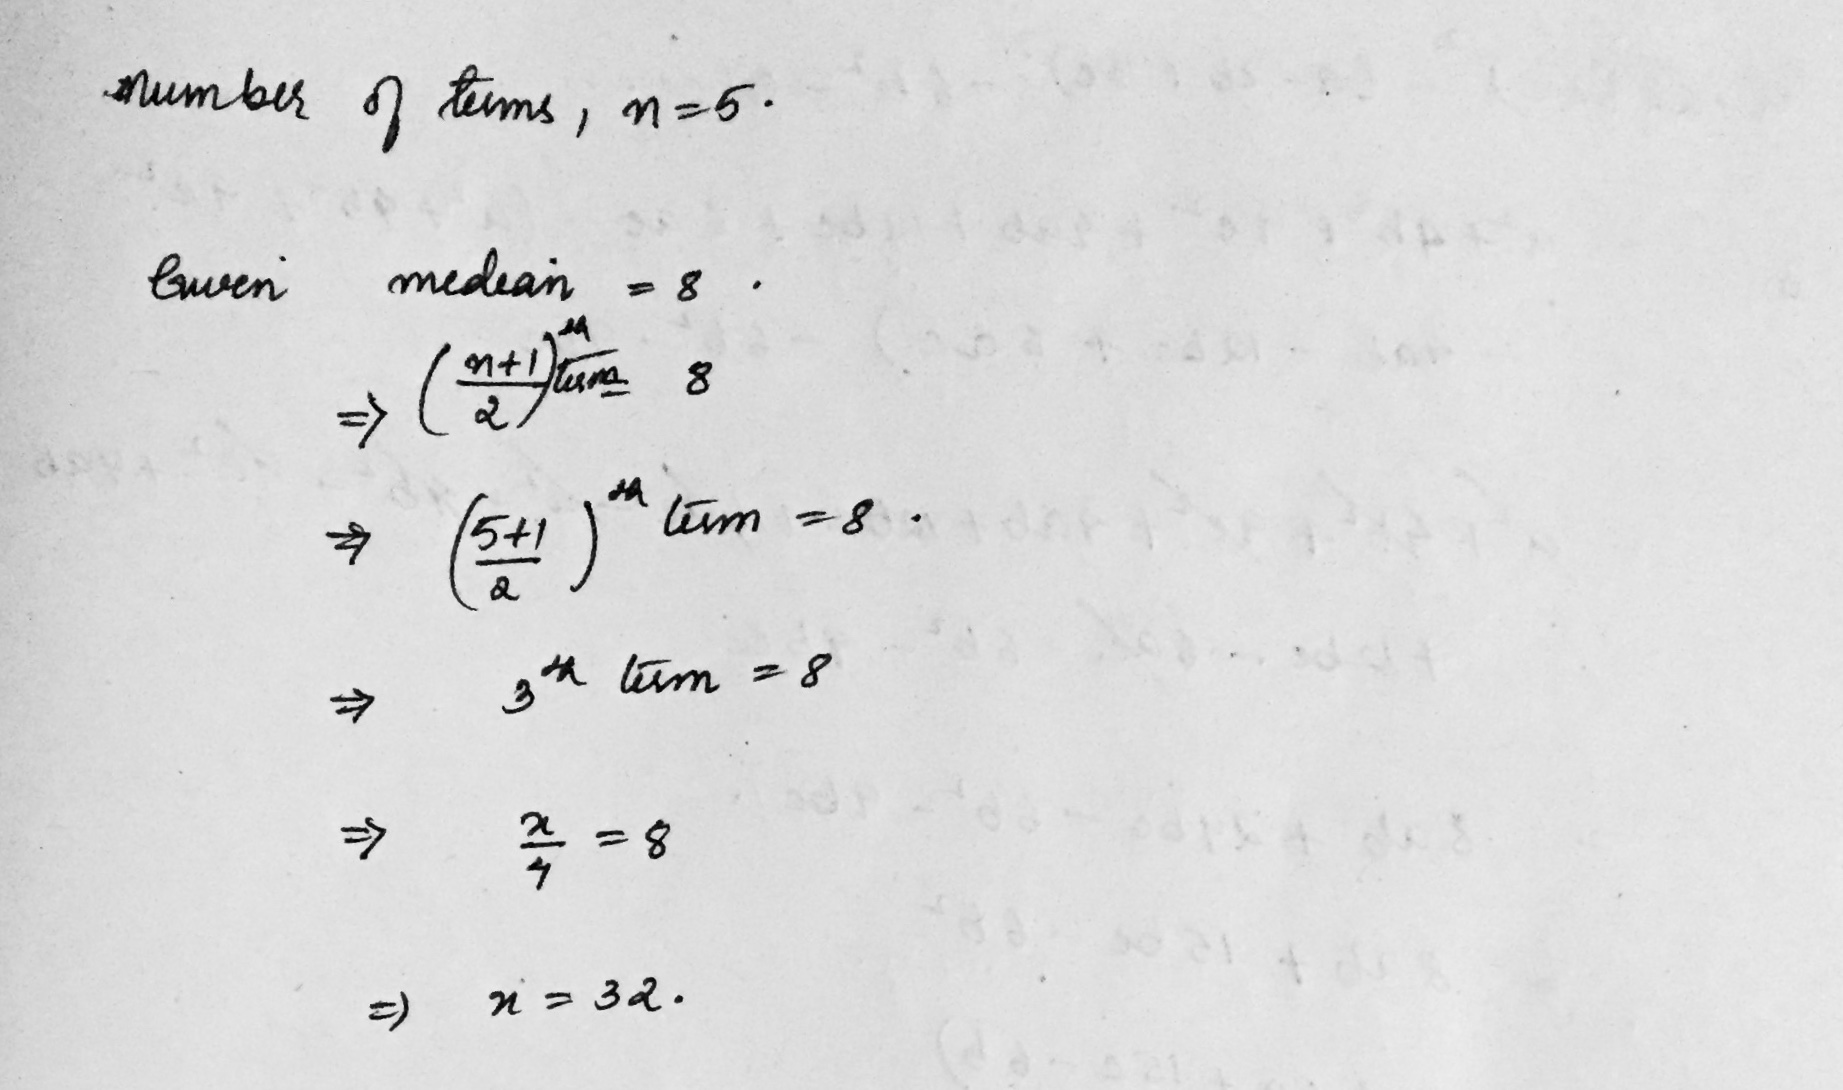 Number of terms, n=5.
Given median = 8.
⇒ (n+1/2)th term 8
⇒ (5+1/2)th term = 8.
⇒ 3th term = 8
⇒ x/4 = 8
⇒ x = 32.